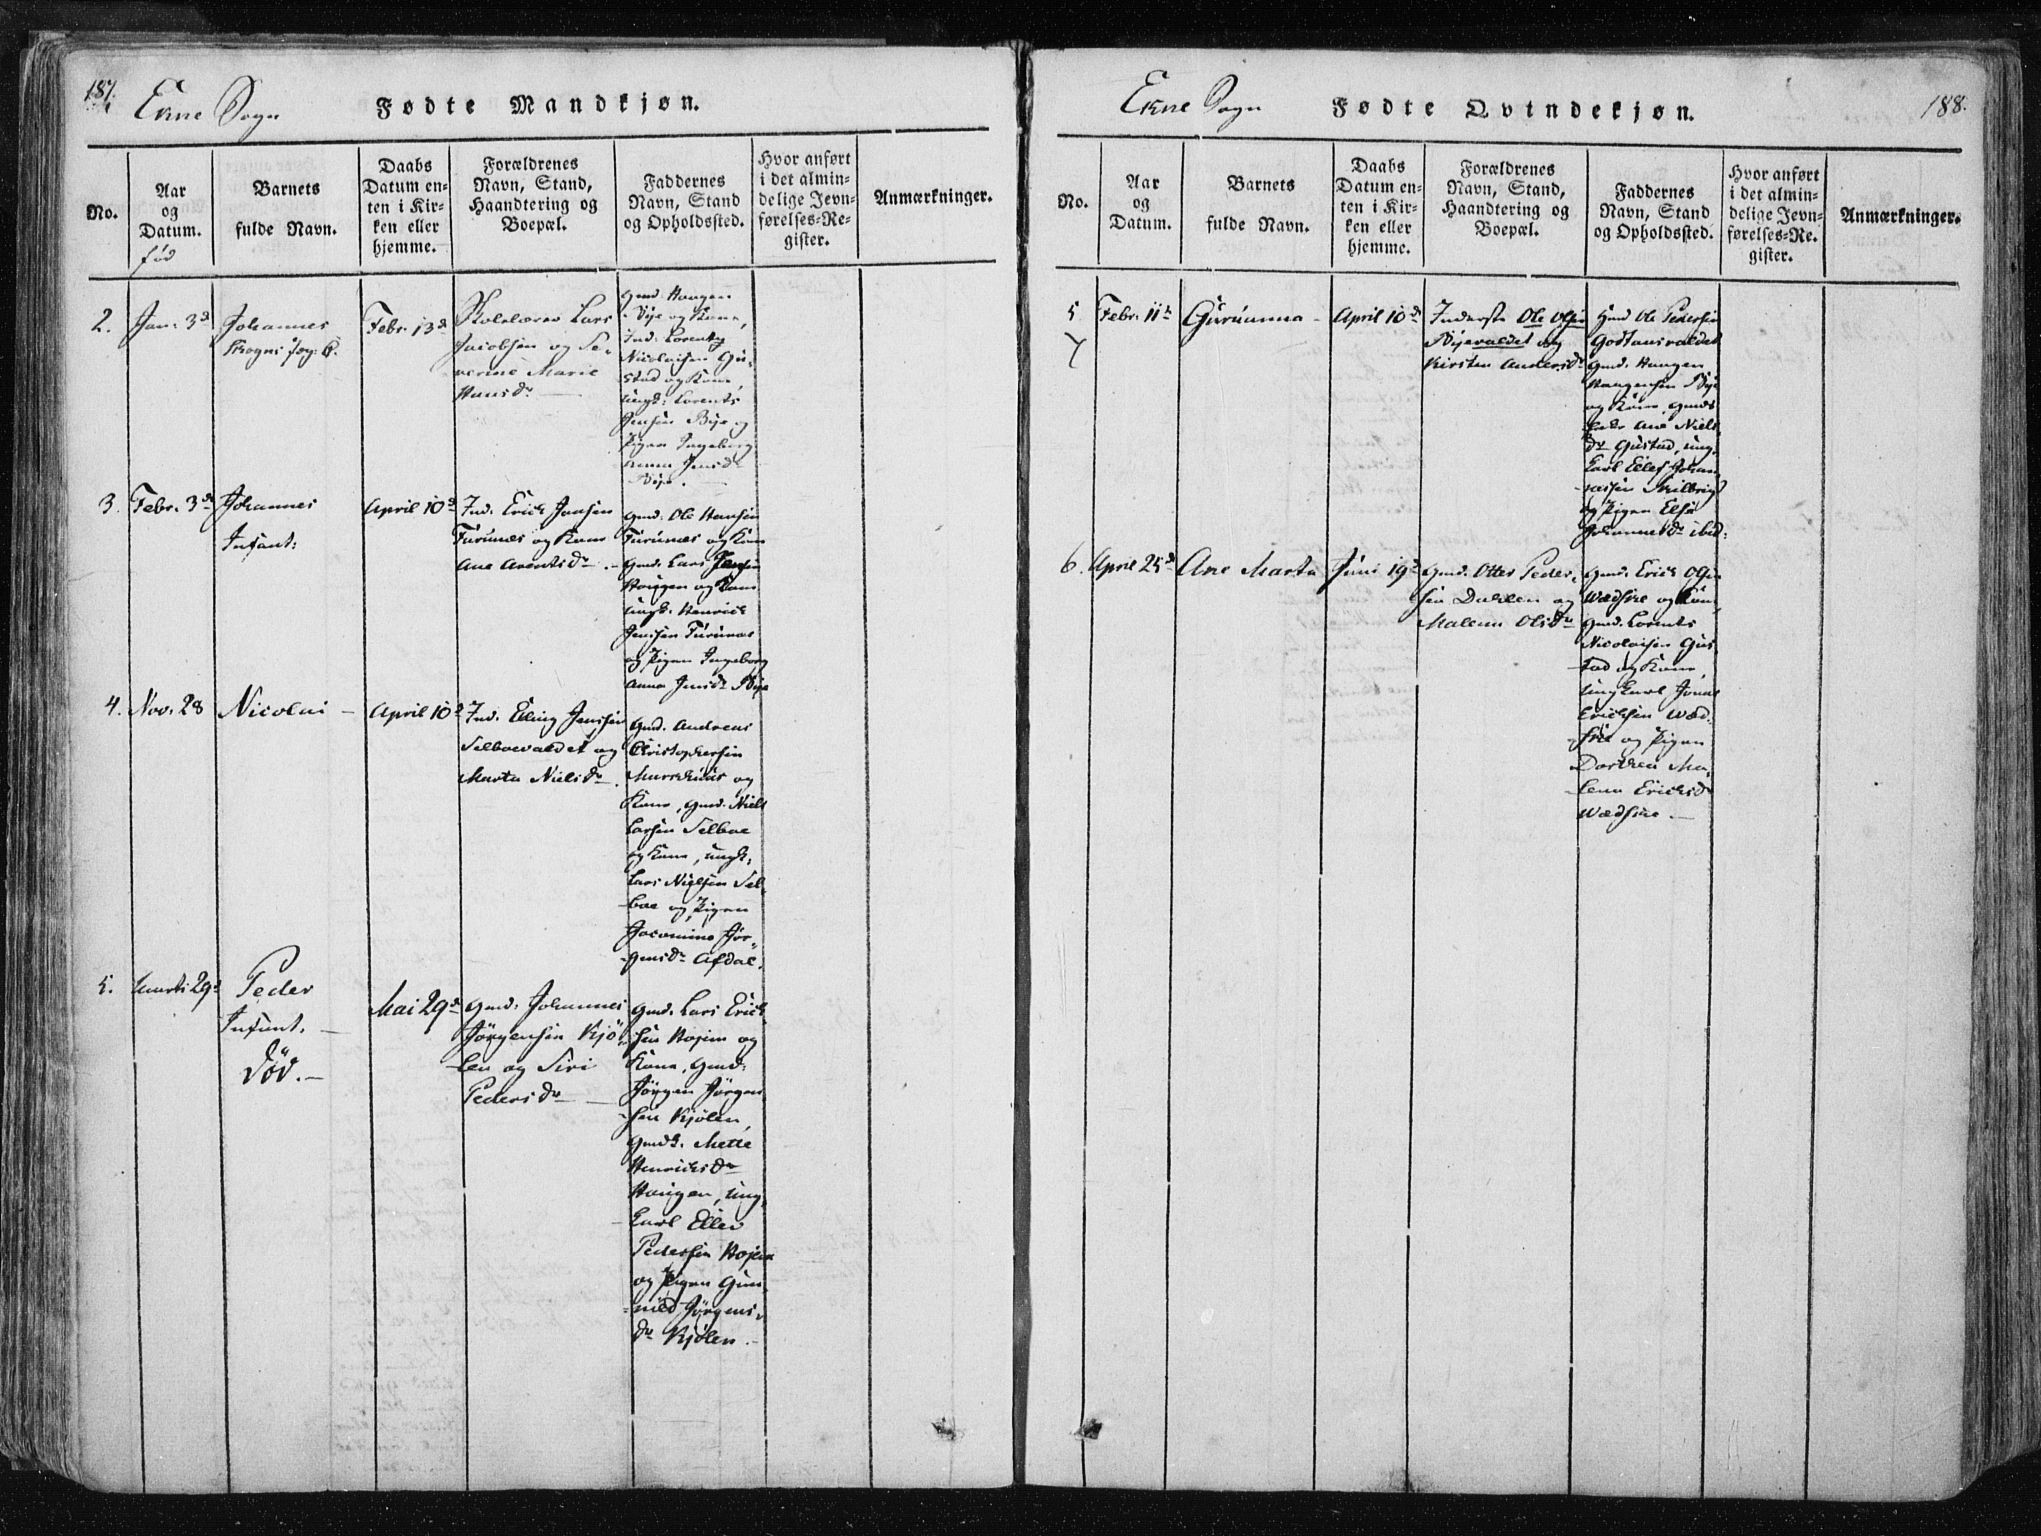 187.
Ekne Sogn
Fødte Mandkjøn.
No.
Aar
og
Datum.
fød
Barnets
fulde Navn.
Daabs
Datum en-
ten i Kir-
ken eller
hjemme.
Forældrenes
Navn, Stand,
Haandtering og
Boepæl.
Faddernes
Navn, Stand
og Opholdssted.
Hvor anført
i det almin-
delige Jevn-
førelses-Re-
gister.
Anmærkninger.
2.
Jan: 3d
Johannes
Febr. 13d
Skolelærer Lars
Jacobsen og Se-
verine Marie
Hansdr
Gmd. Haagen
Bye og Kone,
Ind: Lorents
Nicolaisen Gu-
stad og Kone,
ungk: Lorents
Jensen Bye og
Pigen Ingeborg
Anna Jensdr
Bye.
3.
Febr. 3d
Johannes
Infant:
April 10d
Ind. Erich Jensen
Furunes og Kone
Ane Arentsdr.
Gmd. Ole Hansen
Furunes og Kone
Gmd. Lars Jensen
Haugen og Kone
ungk. Henrich
Jensen Furunes
og Pigen Ingeborg
Anna Jensdr Bye
4.
Nov. 28
Nicolai
April 10d
Ind. Elling Jensen
Selboevaldet og
Marta Nielsdr.
Gmd. Andreas
Christophersen
og
Kone, Gmd. Niels
Larsen Selboe
og Kone, ungk.
Lars Nielsen Sel-
boe og Pigen
Jacomine Jør-
gensdr Afdal.
5.
Marti 29d
Peder
Infant.
Død.
Mai 29d
Gmd. Johannes
Jörgensen Kjö-
len og Siri
Pedersdr
Gmd. Lars Erich-
sen Hojem og
Kone, Gmd.
Jörgen Jörgen-
sen Kjölen,
Gmdk. Mette
Henrichsdr
Haugen, ung-
karl Eller
Pedersen Hojem
og Pigen Gun-
nild Jörgens-
dr Kjölen.
188.
Ekne Sogn
Fødte Qvindekjøn.
No.
Aar
og
Datum.
Barnets
fulde Navn.
Daabs
Datum en-
ten i Kir-
ken eller
hjemme.
Forældrenes
Navn, Stand,
Haandtering og
Boepæl.
Faddernes
Navn, Stand
og Opholdssted.
Hvor anført
i det almin-
delige Jevn-
førelses-Re-
gister.
Anmærkninger.
5
Febr. 11te
Guruanna
April 10d
Inderste Ole Olsen
Byevaldet og
Kirsten Andersdr
Hmd Ole Pedersen
Gmd. Haagen
Haagensen Bye
og Kone, Gmds
Ane Niels-
dr Gustad, ung-
karl Ellef Johan-
nessen
og Pigen Else
Johannesdr ibid:
6.
April 25d
Ane Marta
Juni 19d
Gmd. Otter Peder-
sen Dahlen og
Malena Olsdr
Gmd. Erich Olsen
Wædsive og Kone,
Gmd. Lorents
Nicolaisen Gus-
tad og Kone,
ungkarl Jonas
Erichsen Wæd-
sive og Pigen
Dorthea Ma-
lena Erichsdr
Wædsive.